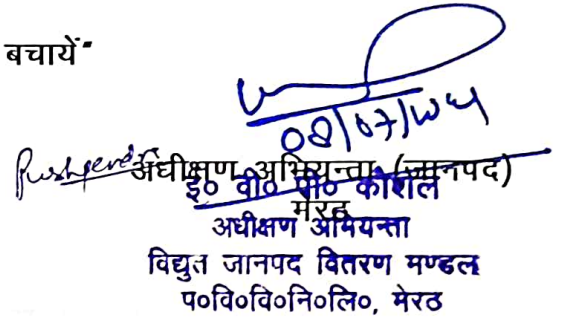 बचायें"
08/07/
Pushpendra
अधीक्षण अभियन्ता (जानपद)
मेरठ
इ० वी० पी० कौशल
अधीक्षण अभियन्ता
विद्युत जानपद वितरण मण्डल
प०वि०वि०नि०लि०, मेरठ